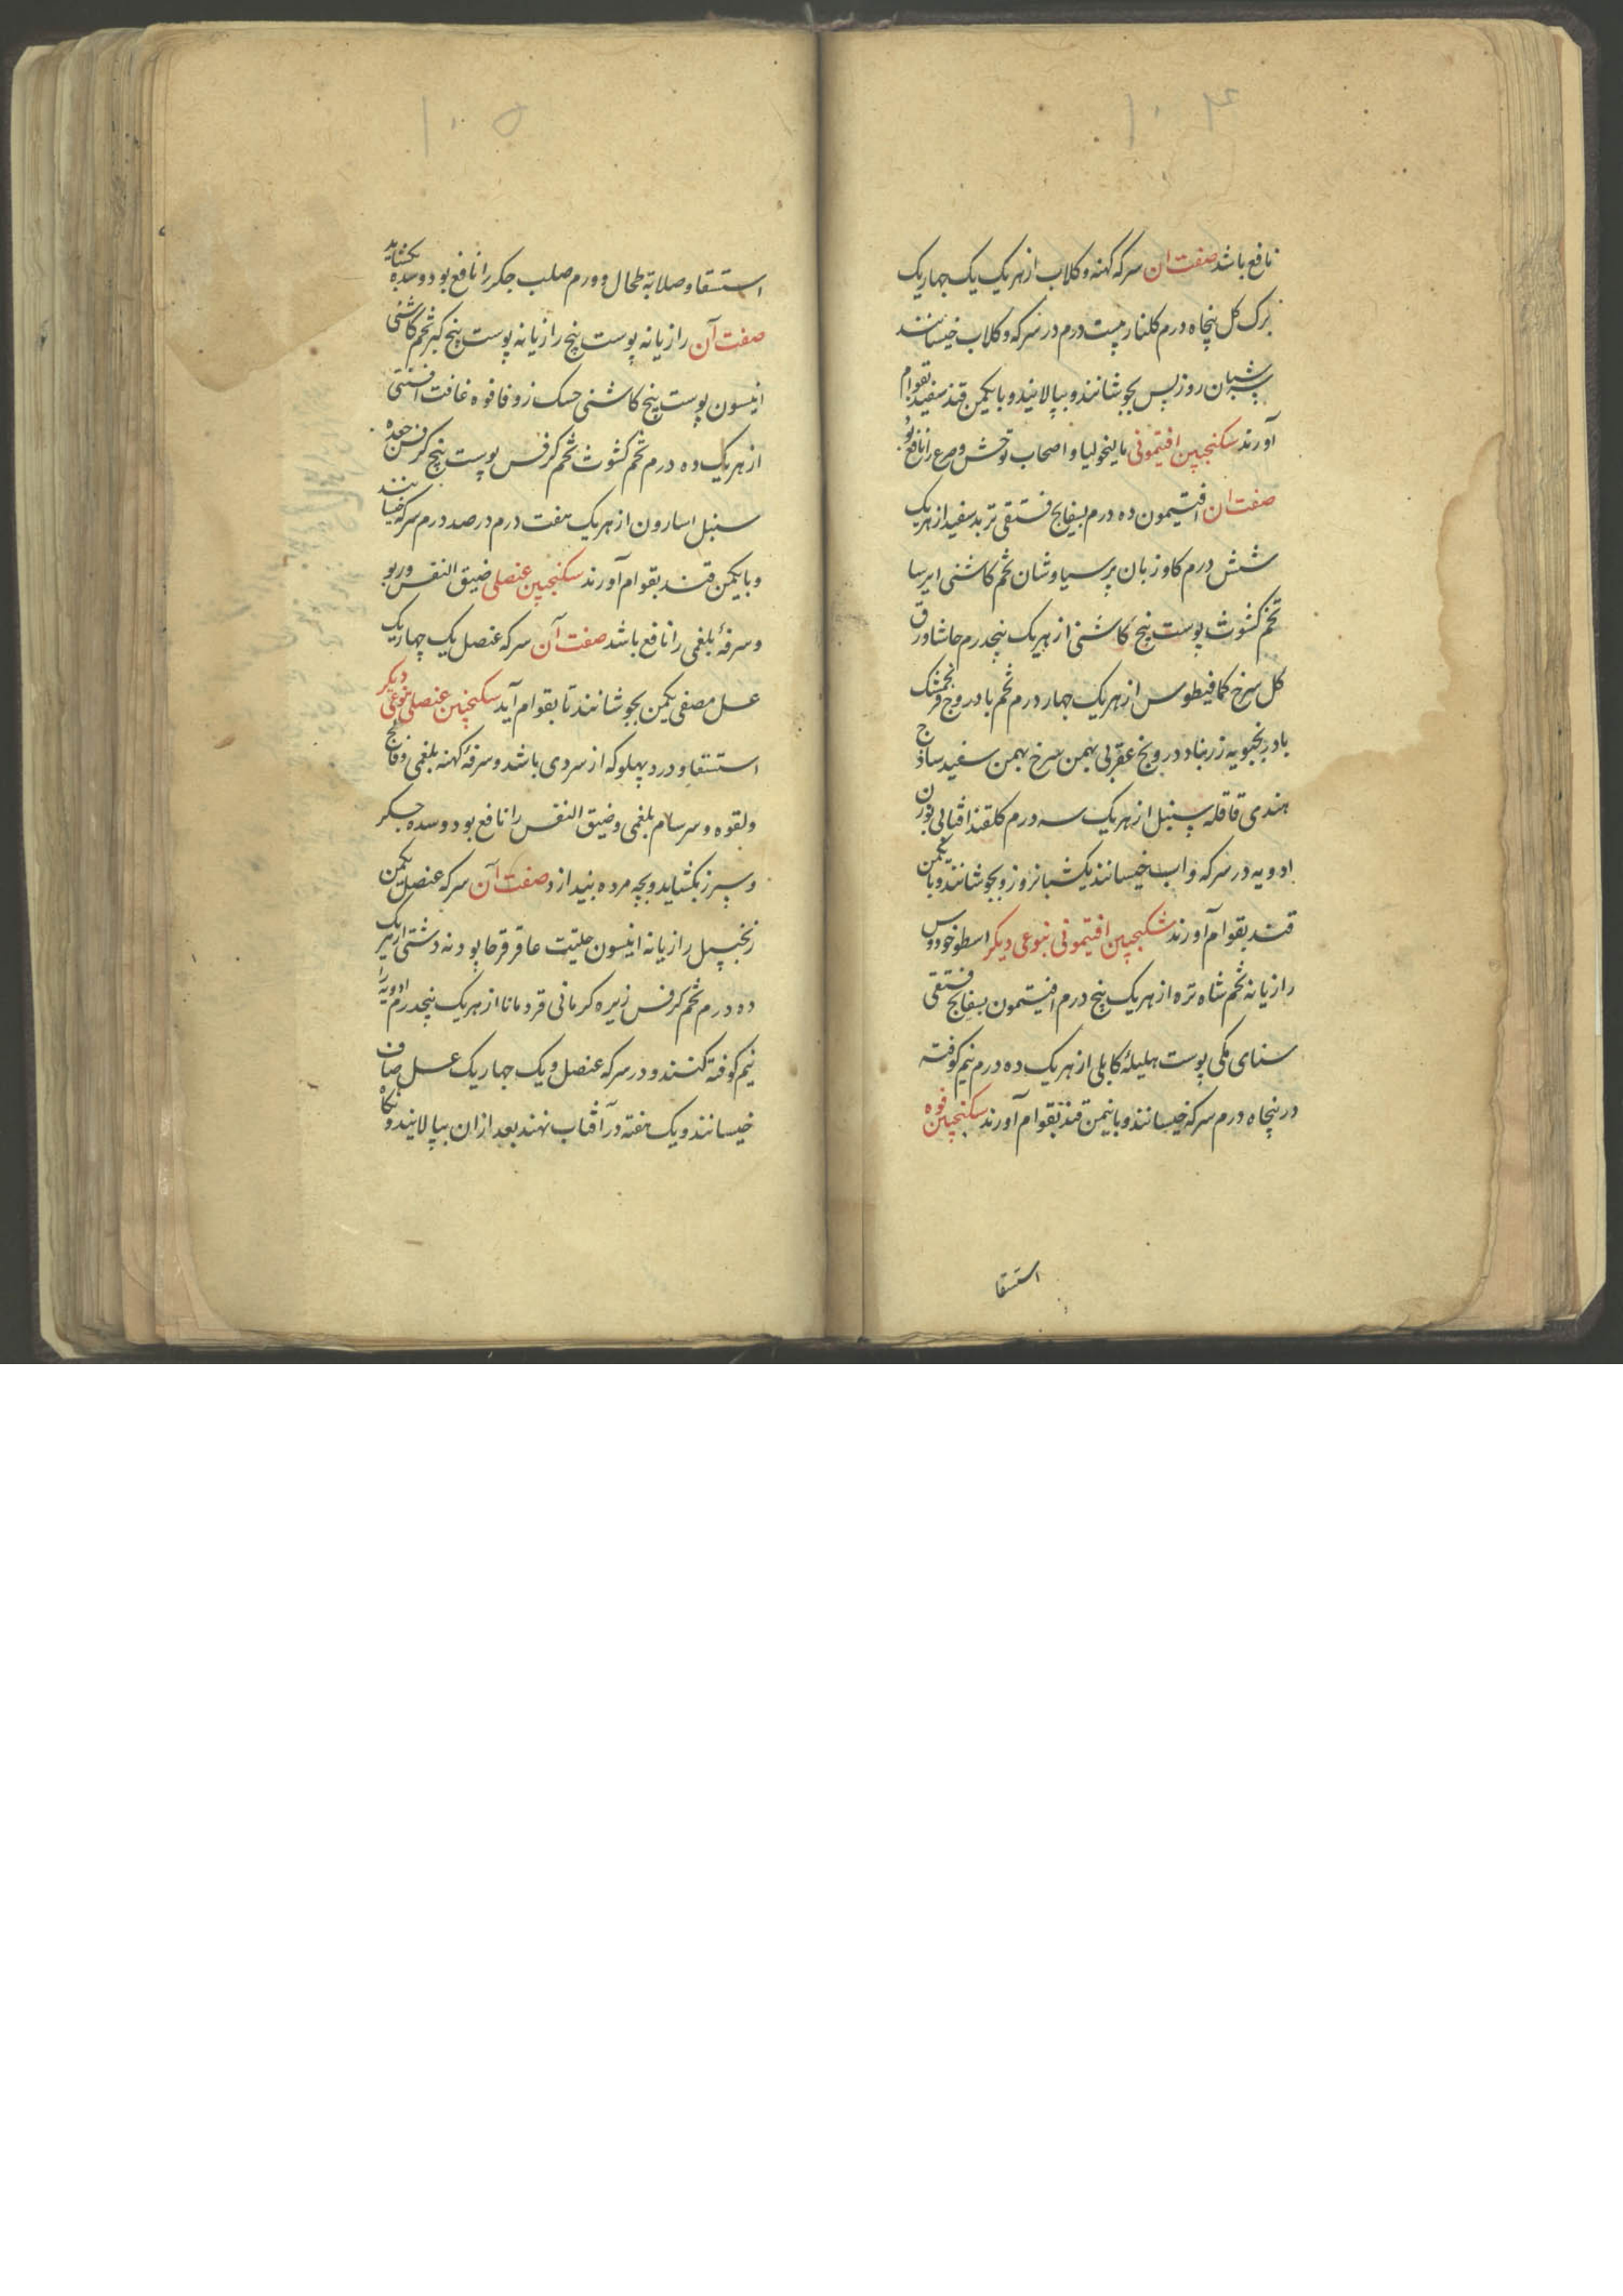 ۱۰۴
نافع باشد صفت ان سرکه کهنه و کلاب از هر یک یک چهاریک
برک کل پنجاه درم کلنار بیست درم در سرکه و کلاب خیسانند
شبان روز پس بجوشانند و بپالایند و با یکمن قند سفید بقوام
آورند سکنجبین افتیمونی مالیخولیا و اصحاب توحش و صرع را نافع بود
صفت ان افتیمون ده درم بسفایج فستقی تربد سفید از هر یک
شش درم کاوزبان پرسیاوشان تخم کاشنی ایرسا
تخم کشوث پوست بیخ کاشنی از هر یک پنجدرم حاشا ورق
کل سرخ کمافیطوس از هر یک چهار درم تخم بادروج فرنجمشک
بادرنجبویه زرنباد درونج عقربی بهمن سرخ بهمن سفید ساذج
هندی قاقله سنبل از هر یک سه درم کلقند افتابی بوزن
ادویه در سرکه و اب خیسانند یکشبانروز و بجوشانند و با یکمن
قند بقوام آورند سکنجبین افتیمونی بنوعی دیکر اسطوخودوس
رازیانه تخم شاه تره از هر یک پنج درم افتیمون بسفایج فستقی
سنای مکی پوست هلیلهٔ کابلی از هر یک ده درم نیم کوفته
در پنجاه درم سرکه خیسانند و با نیمن قند بقوام آورند سکنجبین فوه
استسقا
۱۰۵
استسقا و صلابة طحال و ورم صلب جکر را نافع بود و سده بکشاید
صفت آن رازیانه پوست بیخ رازیانه پوست بیخ کبر تخم کاشنی
انیسون پوست بیخ کاشنی حسک زوفا فوه غافت افسنتی
از هر یک ده درم تخم کشوث تخم کرفس پوست بیخ کرفس جعده
سنبل اسارون از هر یک هفت درم در صد درم سرکه خیسانند
و با یکمن قند بقوام آورند سکنجبین عنصلی ضیق النفس و ربو
و سرفهٔ بلغمی را نافع باشد صفت آن سرکه عنصل یک چهاریک
عسل مصفی یکمن بجوشانند تا بقوام آید سکنجبین عنصلی نوعی دیکر
استسقا و درد پهلو که از سردی باشد و سرفهٔ کهنه بلغمی و فالج
و لقوه و سرسام بلغمی و ضیق النفس را نافع بود و سده جکر
و سپرز بکشاید و بچه مرده بیندازد صفت آن سرکه عنصل یکمن
زنجبیل رازیانه انیسون حلتیت عاقر قرحا پودنه دشتی از هر یک
ده درم تخم کرفس زیره کرمانی قردمانا از هر یک پنجدرم ادویه را
نیم کوفته کنند و در سرکه عنصل و یک چهاریک عسل صاف
خیسانند و یک هفته در آفتاب نهند بعد از ان بپالایند و نکاه